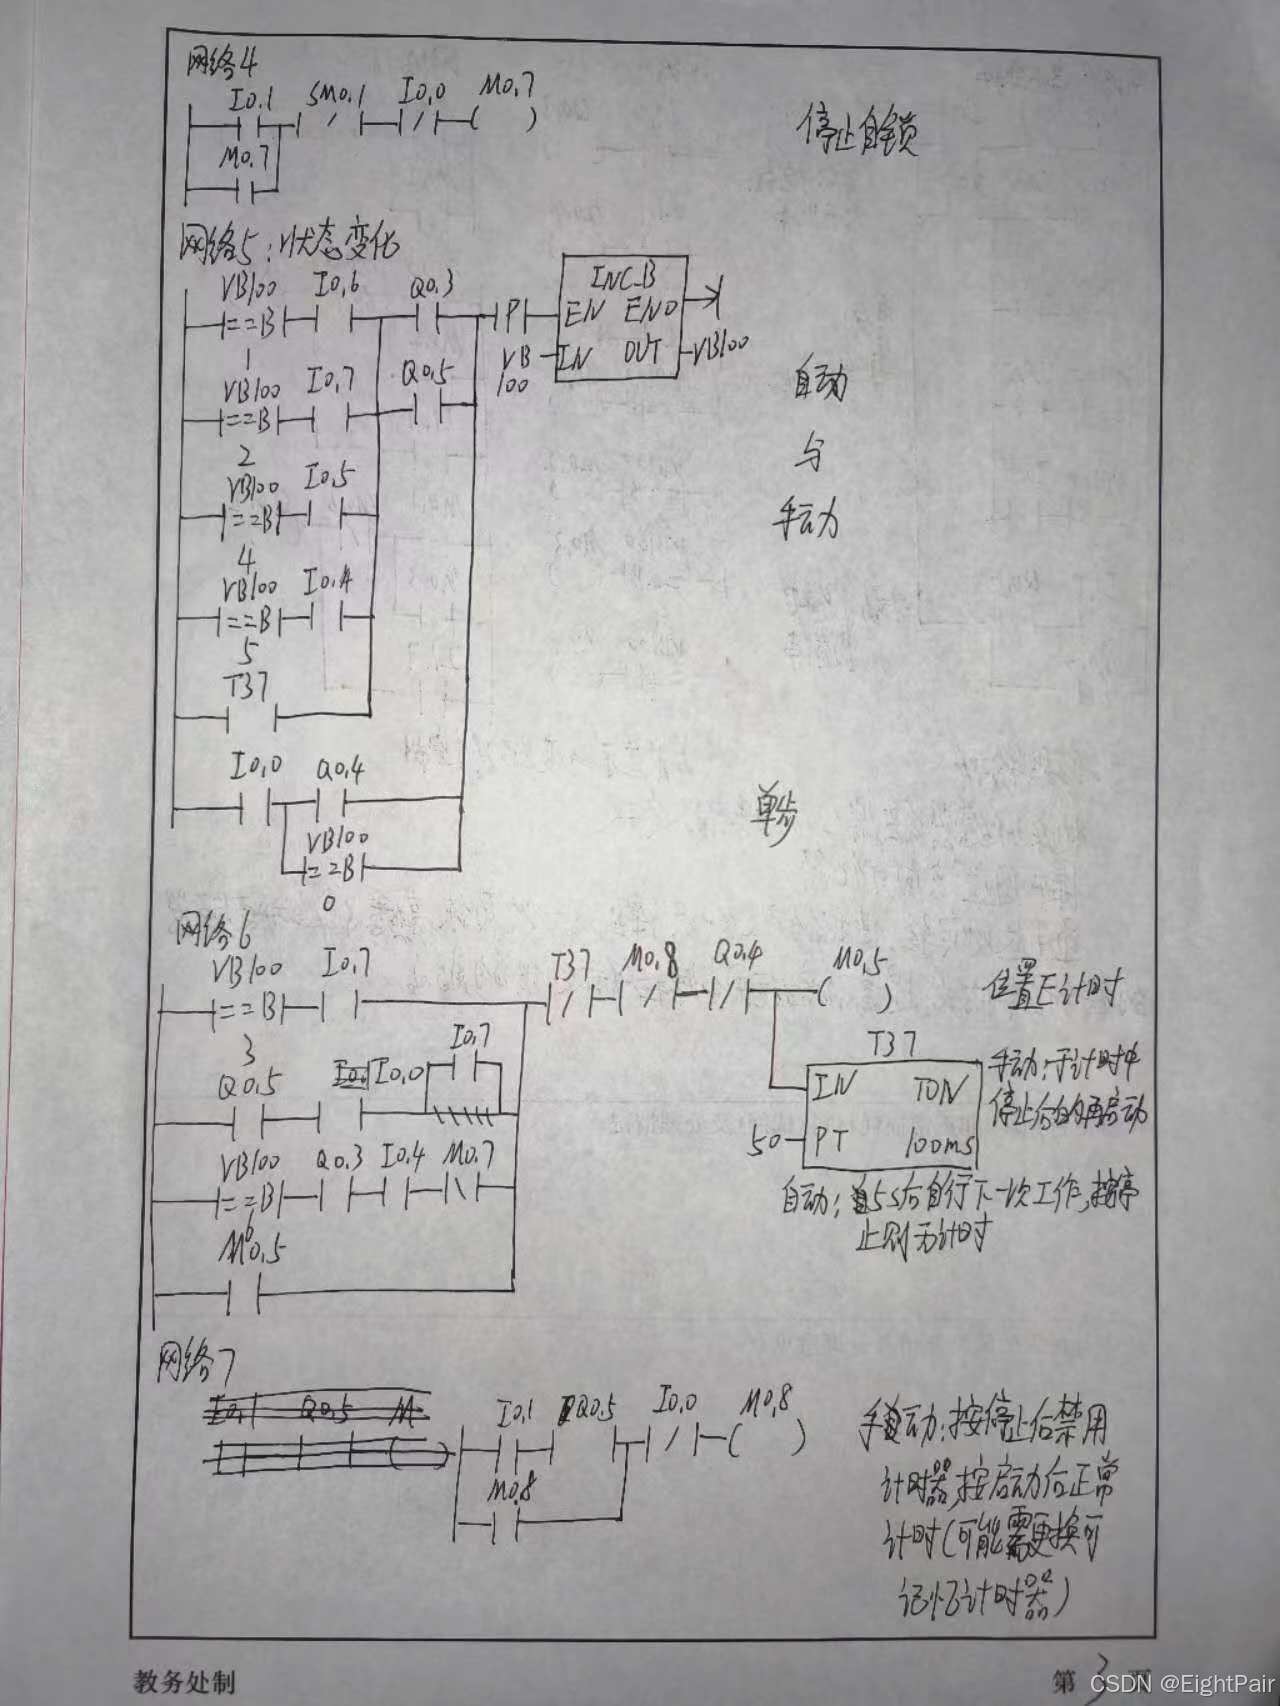 网络4
I0.1 SM0.1 I0.0 M0.7
停止自锁
M0.7
网络5:状态变化
VB100 I0.6 Q0.3
INC_B
==B P EN ENO
1 VB100 IN OUT VB100
VB100 I0.7 Q0.5
==B
自动
2
与
VB100 I0.5
==B
手动
4
VB100 I0.4
==B
5
T37
I0.0 Q0.4
单步
VB100
==B
0
网络6
VB100 I0.7 T37 M0.8 Q0.4 M0.5
==B
位置E计时
3
I0.7
T37
Q0.5 I0.0
IN TON
手动:于计时中
停止后的再启动
50 PT 100ms
VB100 Q0.3 I0.4 M0.7
==B
6
自动:5s后自行下一次工作,按停
止则无计时
M0.5
网络7
I0.1 Q0.5 M
I0.1 Q0.5 I0.0 M0.8
M0.8
手动:按停止后禁用
计时器,按启动后正常
计时(可能需更换可
记忆计时器)
教务处制
第3页
CSDN @EightPair